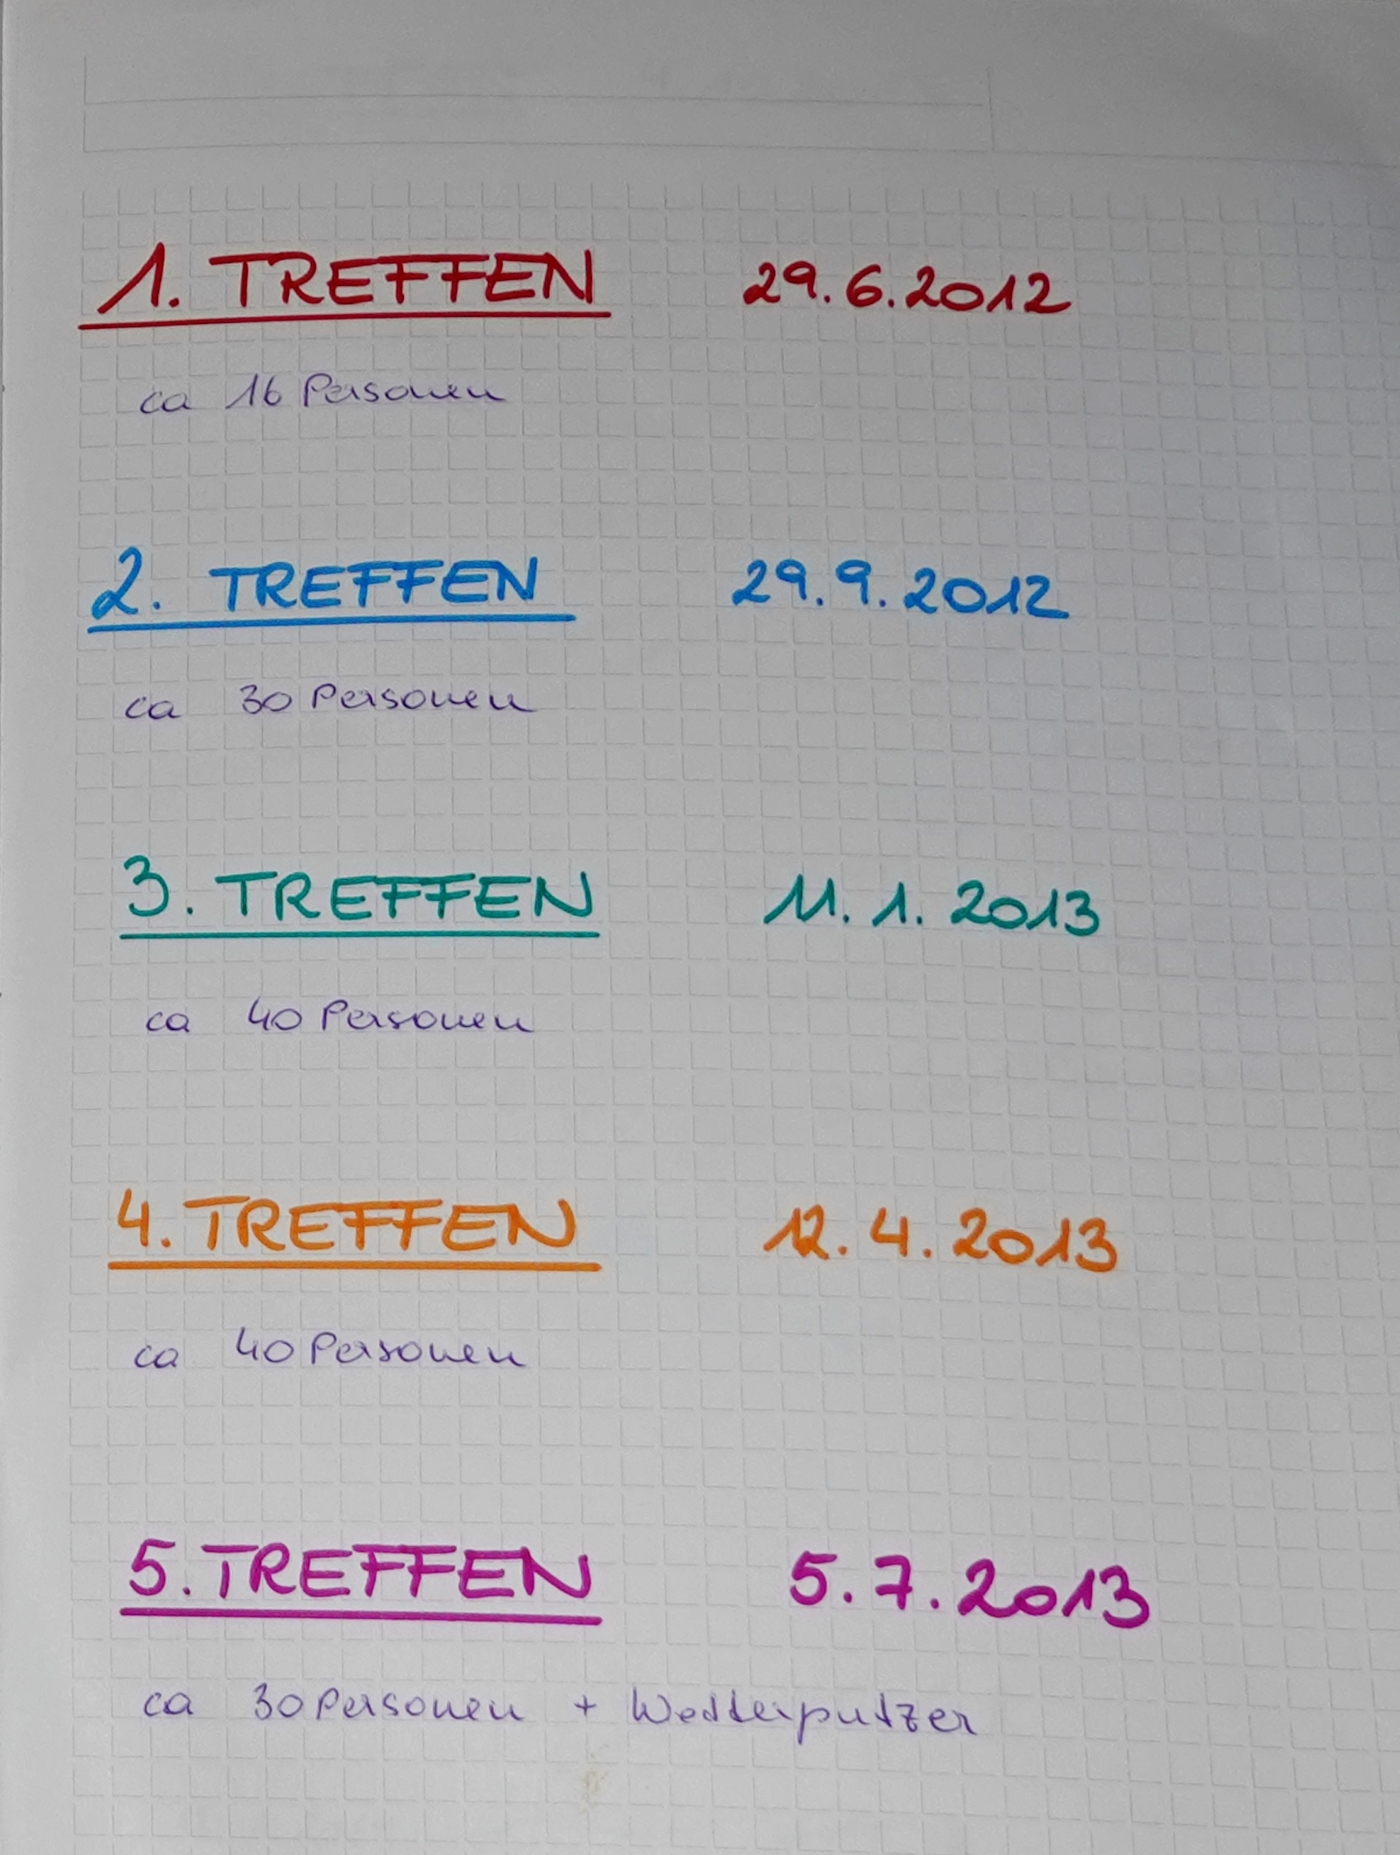 1. TREFFEN 29.6.2012
ca 16 Personen
2. TREFFEN 29.9.2012
ca 30 Personen
3. TREFFEN 11.1.2013
ca 40 Personen
4. TREFFEN 12.4.2013
ca 40 Personen
5. TREFFEN 5.7.2013
ca 30 Personen + Wetterputzer